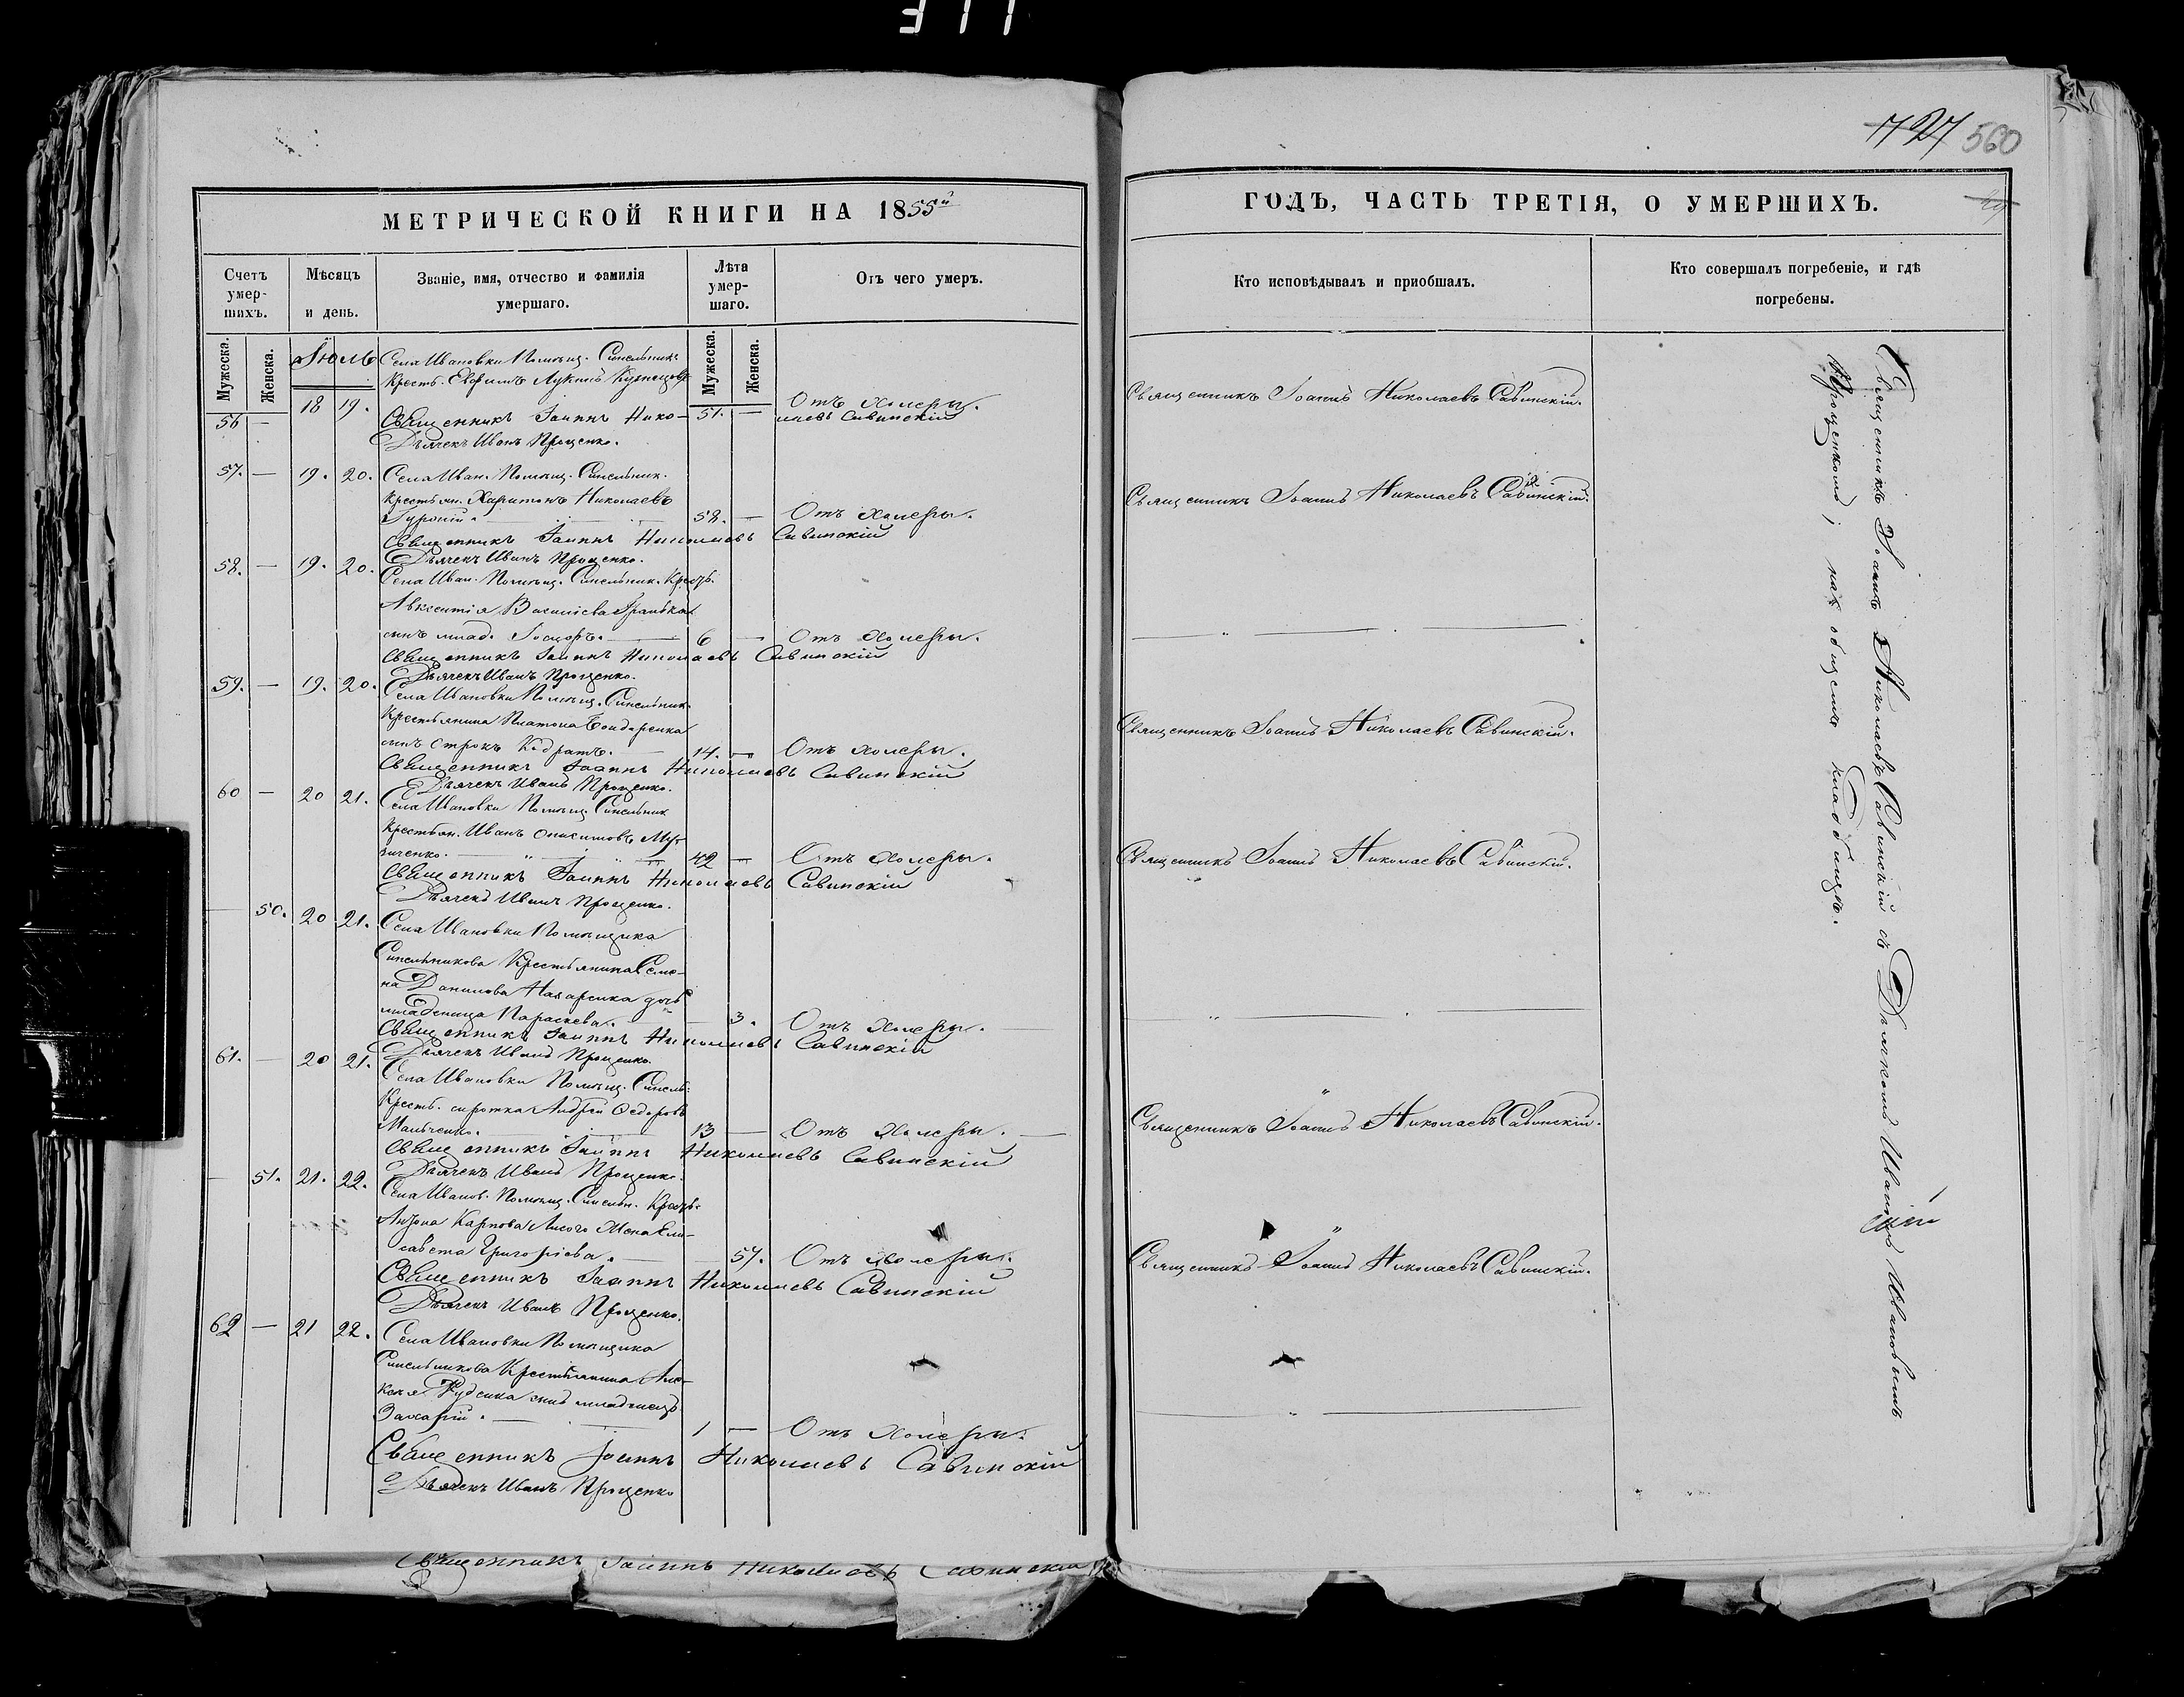 727 560
МЕТРИЧЕСКОЙ КНИГИ НА 1855й
ГОДЪ, ЧАСТЬ ТРЕТІЯ, О УМЕРШИХЪ.
Счетъ умер-шихъ.
Мѣсяцъ и день.
Званіе, имя, отчество и фамилія умершаго.
Лѣта умер-шаго.
Отъ чего умеръ.
Кто исповѣдывалъ и пріобщалъ.
Кто совершалъ погребеніе, и гдѣ погребены.
Мужеска. Женска. Мужеска. Женска.
Іюль
Села Ивановки Помѣщ. Синельник.
Крестьян. Евфимъ Лукинъ Кузнецовъ
56 — 18 19. 51. — Отъ Холеры. Священникъ Іоаннъ Николаевъ Савинскій.
Священникъ Іоаннъ Николаевъ Савинскій
Дьячекъ Иванъ Проценко.
57. — 19. 20. Села Иван. Помѣщ. Синельник.
Крестьян. Харитонъ Николаевъ
58. — Отъ Холеры. Священникъ Іоаннъ Николаевъ Савинскій.
Священникъ Іоаннъ Николаевъ Савинскій
Дьячекъ Иванъ Проценко.
58. — 19. 20. Села Иван. Помѣщ. Синельник. Крестьян.
Авксентія Василіева
сынъ млад. 6 — Отъ Холеры.
Священникъ Іоаннъ Николаевъ Савинскій
Дьячекъ Иванъ Проценко.
59. — 19. 20. Села Ивановки Помѣщ. Синельник.
Крестьянина Платона Бондаренка
сынъ отрокъ Кодратъ. 14. — Отъ холеры. Священникъ Іоаннъ Николаевъ Савинскій.
Священникъ Іоаннъ Николаевъ Савинскій
Дьячекъ Иванъ Проценко.
60 — 20 21. Села Ивановки Помѣщ. Синельник
Крестьян. Иванъ Онисимовъ
42 — Отъ Холеры. Священникъ Іоаннъ Николаевъ Савинскій.
Священникъ Іоаннъ Николаевъ Савинскій
Дьячекъ Иванъ Проценко.
— 50. 20 21. Села Ивановки Помѣщика
Синельникова Крестьянина Семе-
на Данилова Назаренка дочь
младеница Параскева. 3. Отъ Холеры.
Священникъ Іоаннъ Николаевъ Савинскій
Дьячекъ Иванъ Проценко.
61. — 20 21. Села Ивановки Помѣщ. Синель.
Крестьян. сиротка Андрей Федоровъ
Мальченко. 13 — Отъ Холеры. — Священникъ Іоаннъ Николаевъ Савинскій.
Священникъ Іоаннъ Николаевъ Савинскій
Дьячекъ Иванъ Проценко.
— 51. 21. 22. Села Иванов. Помѣщ. Синельн. Крестьян.
Антона Карпова Лисого Жена Ели-
савета Григоріева. 57. Отъ Холеры. Священникъ Іоаннъ Николаевъ Савинскій.
Священникъ Іоаннъ Николаевъ Савинскій
Дьячекъ Иванъ Проценко.
62 — 21 22. Села Ивановки Помѣщика
Синельникова Крестьянина Але-
ксѣя Руденка сынъ младенецъ
Захарій. 1 — Отъ Холеры.
Священникъ Іоаннъ Николаевъ Савинскій
Дьячекъ Иванъ Проценко
Священникъ Іоаннъ Николаевъ Савинскій съ Дьячкомъ Иваномъ Ивановымъ
Проценкомъ; на общемъ кладбищѣ.
Священникъ Іоаннъ Николаевъ Савинскій